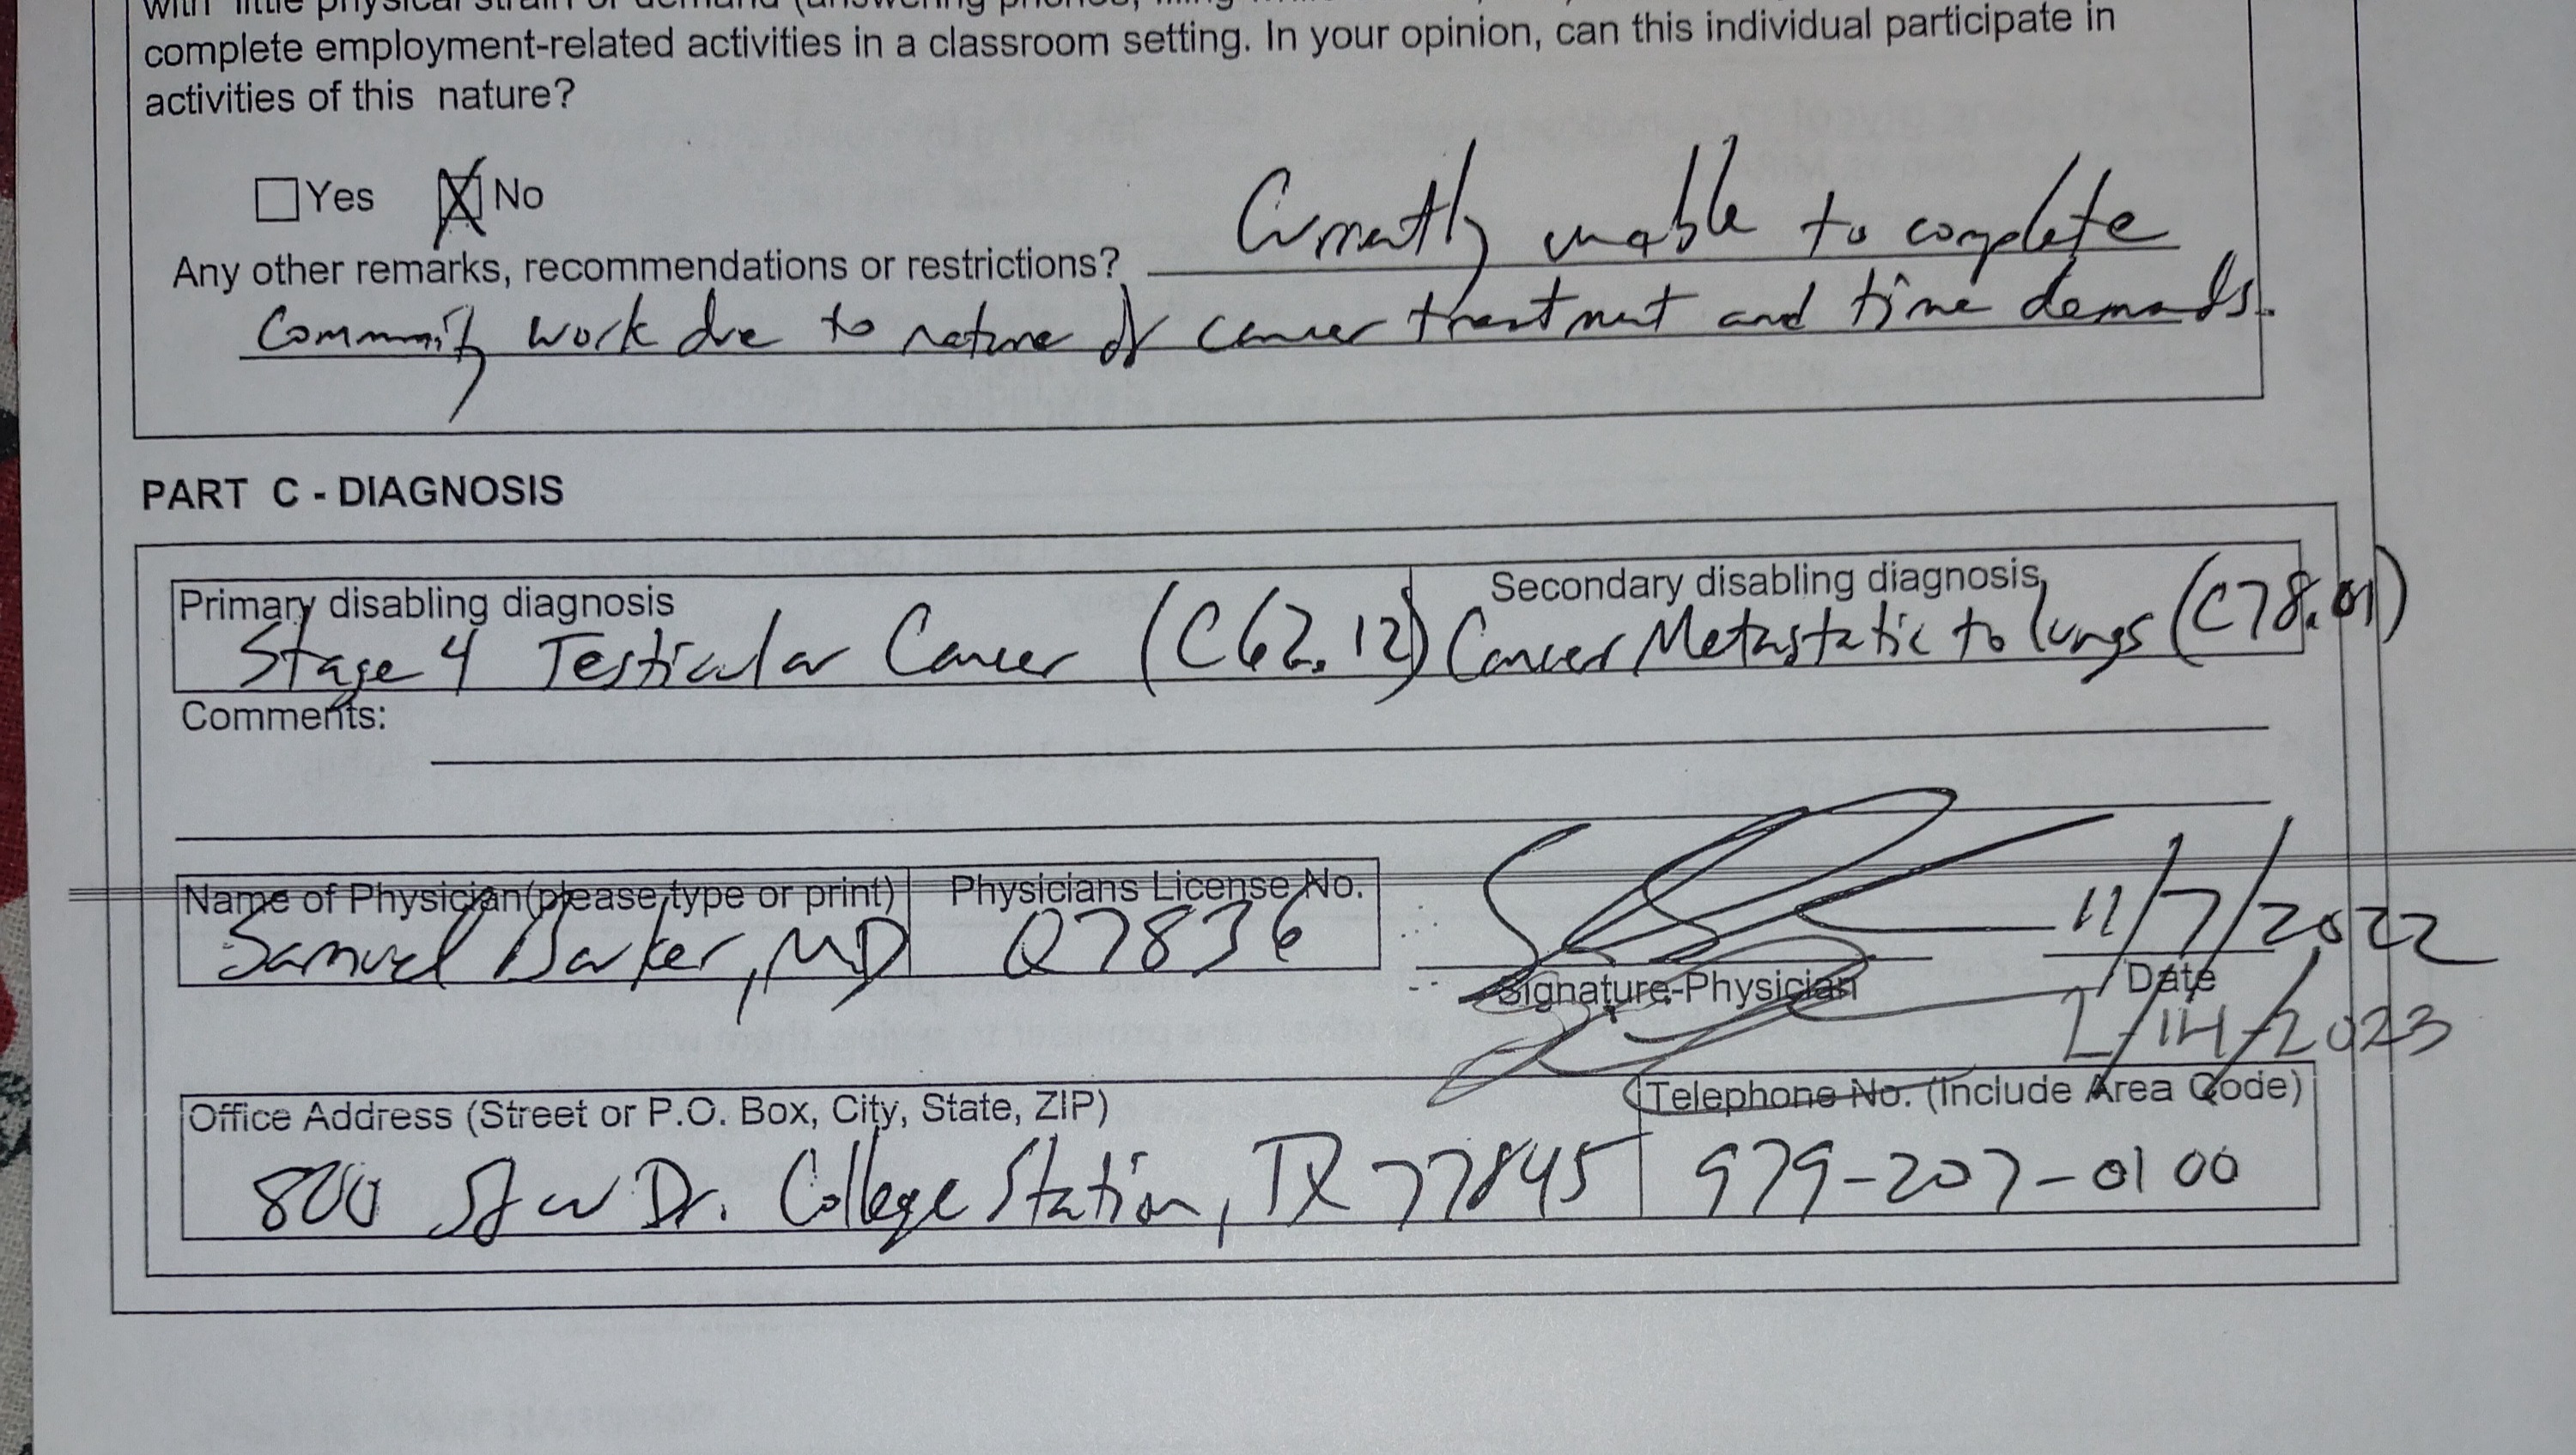 with little physical strain or demand (answering phones, filing
complete employment-related activities in a classroom setting. In your opinion, can this individual participate in
activities of this nature?
Yes X No
Any other remarks, recommendations or restrictions? Currently unable to complete
Community work due to nature of cancer treatment and time demands.
PART C - DIAGNOSIS
Primary disabling diagnosis Secondary disabling diagnosis
Stage 4 Testicular Cancer (C62.12) Cancer Metastatic to lungs (C78.01)
Comments:
Name of Physician(please type or print) Physicians License No.
Samuel Barker, MD Q7836 11/7/2022
Signature-Physician Date
2/14/2023
Office Address (Street or P.O. Box, City, State, ZIP) Telephone No. (Include Area Code)
800 Dr. College Station, TX 77845 979-207-0100